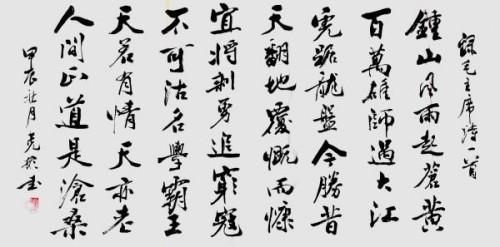 錄毛主席詩一首
鍾山风雨起蒼黄
百萬雄師過大江
虎踞龍盤今勝昔
天翻地覆慨而慷
宜將剩勇追窮寇
不可沽名學霸王
天若有情天亦老
人间正道是滄桑
甲辰 月 克 书